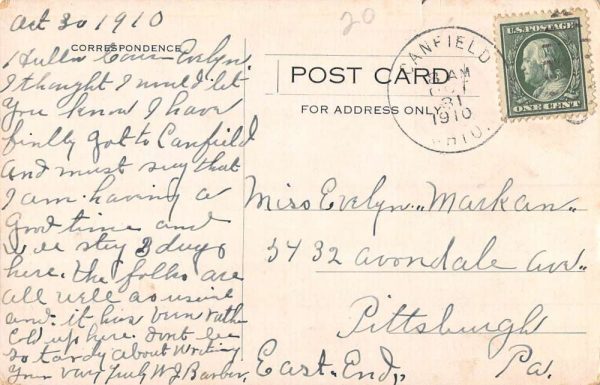 Oct 30 1910
20
CORRESPONDENCE
Hullo Cous Evelyn.
I thought I would let
you know I have
finly got to Canfield
and must say that
I am having a
good time and
will stay 3 days
here. The folks are
all well as usual
and it has bin rathe
Cold up here. dont be
so tardy about Writing
Your very Truly W J Barber.
POST CARD
FOR ADDRESS ONLY
CANFIELD
AM
OCT
31
1910
OHIO.
U.S. POSTAGE
ONE CENT
Miss Evelyn Markan
5432 avondale ave
Pittsburgh
East End, Pa.